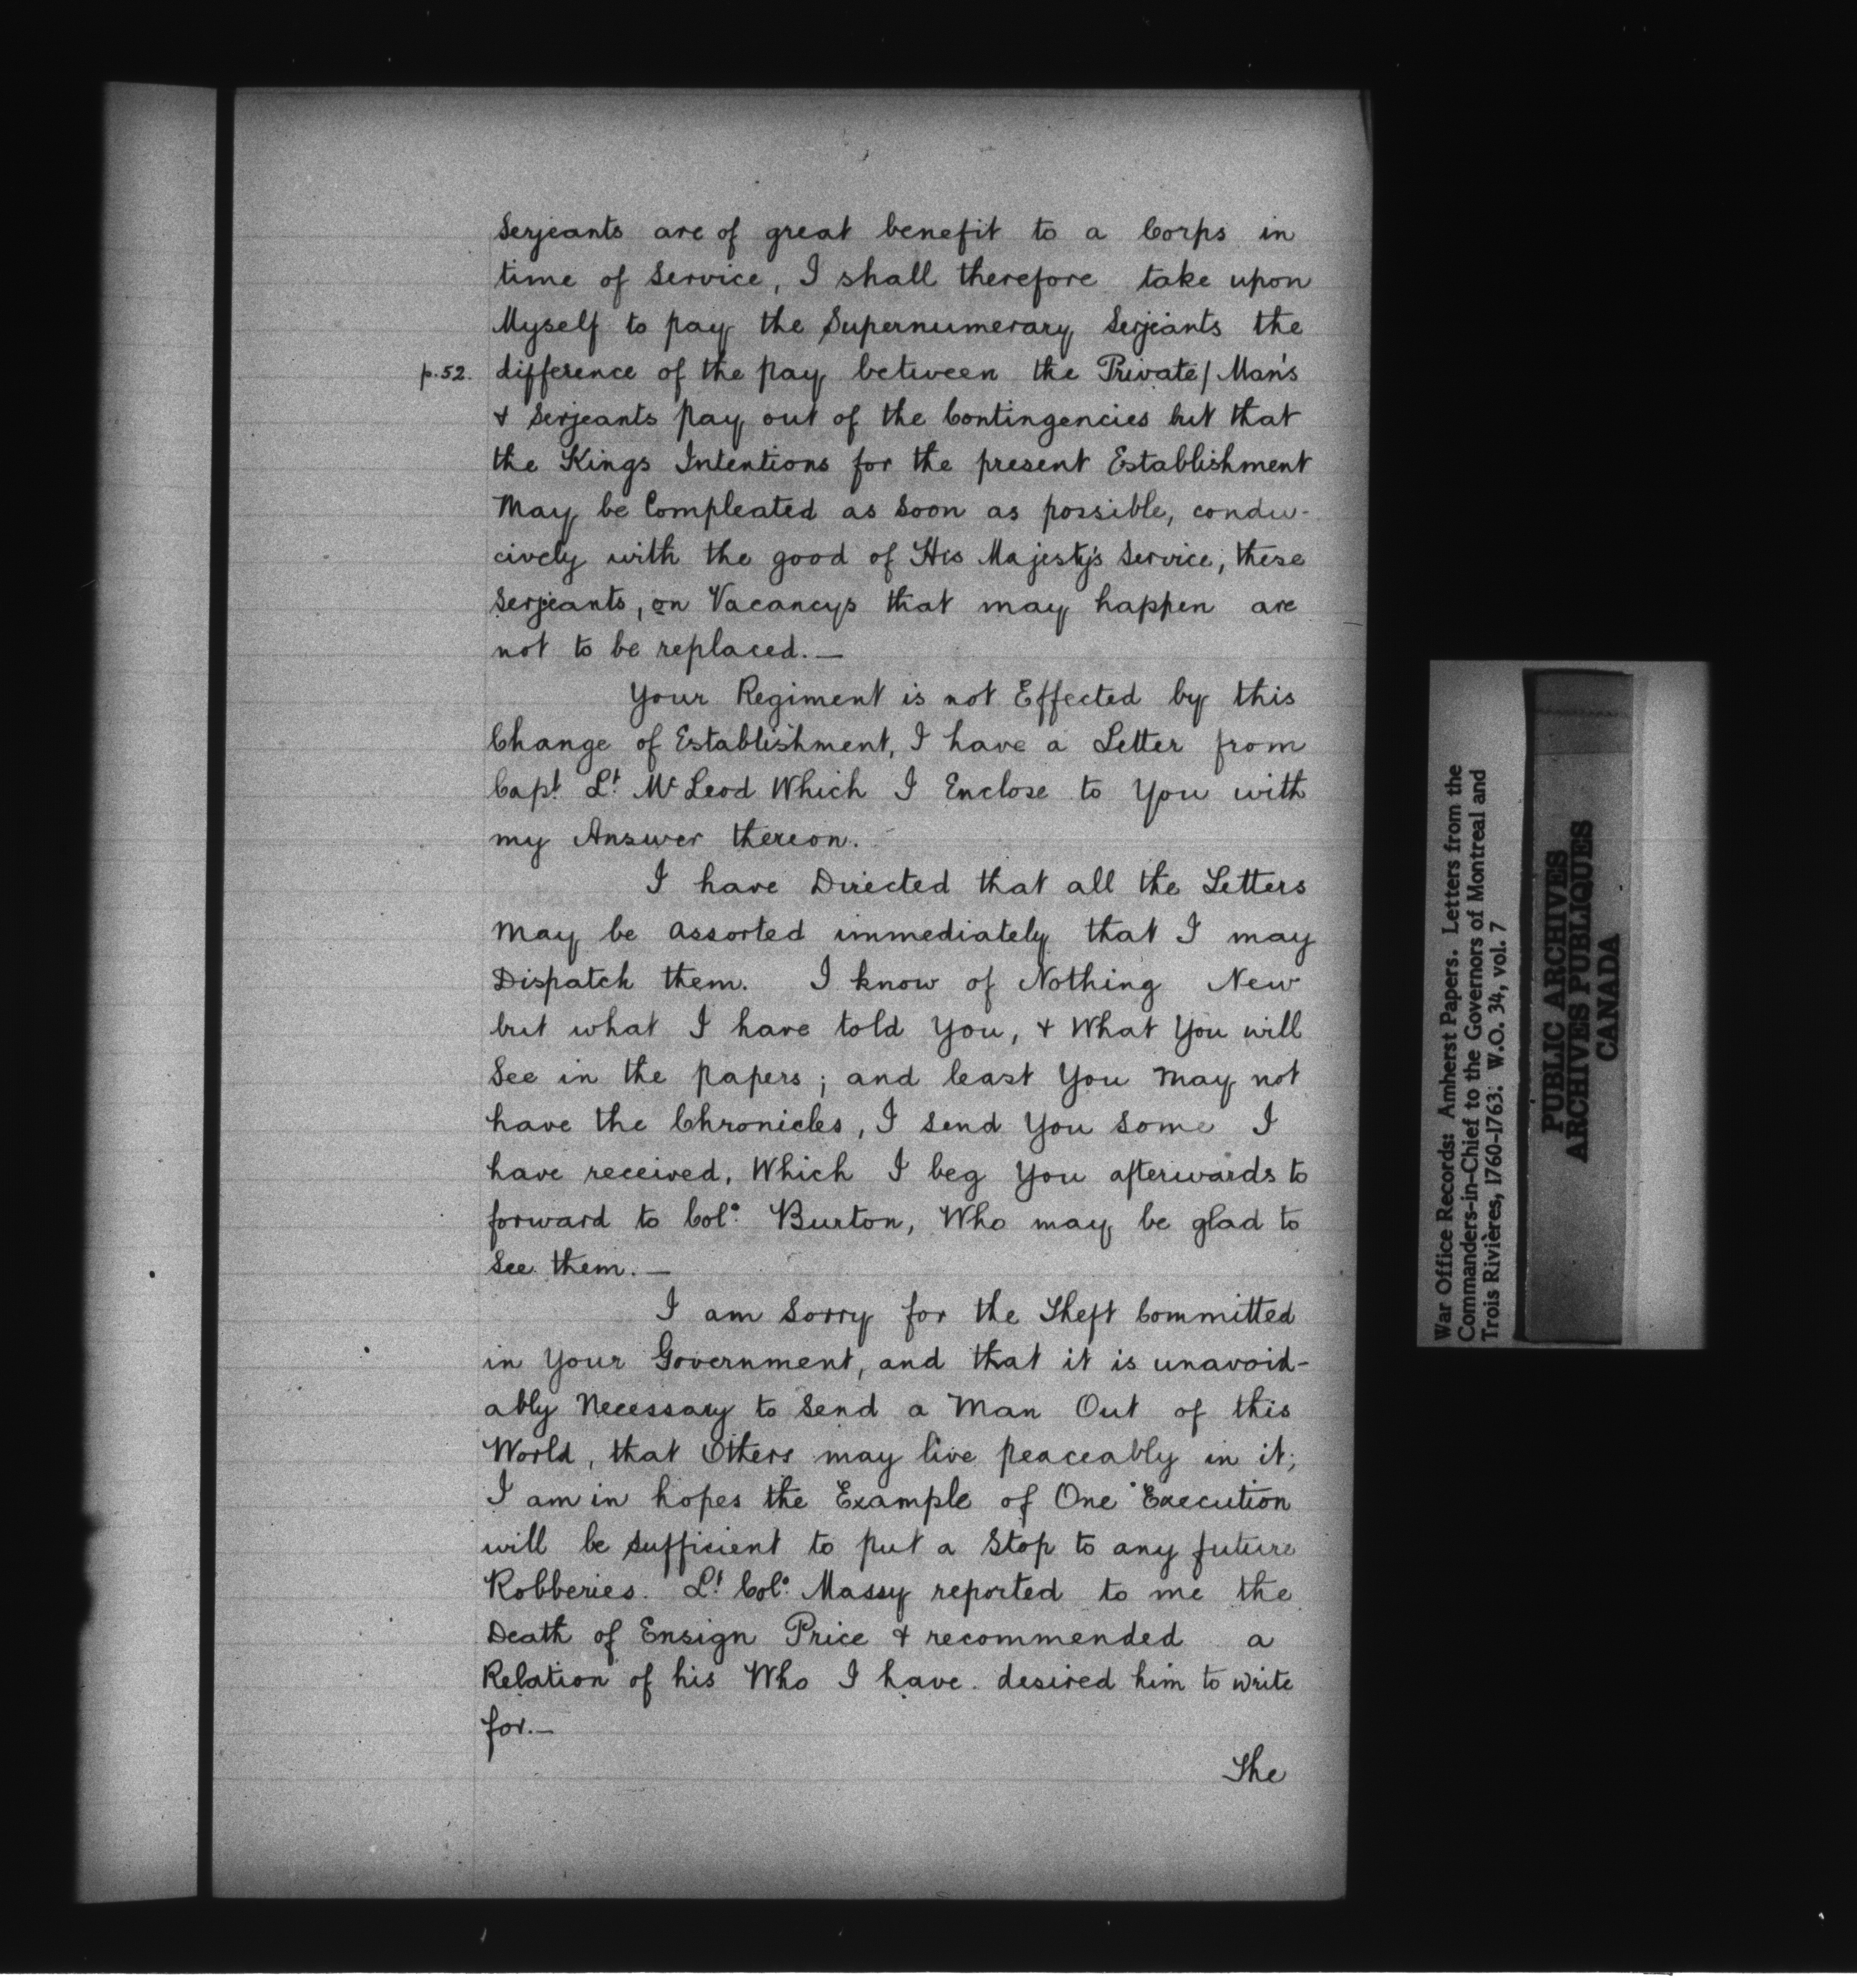 Serjeants are of great benefit to a Corps in
time of Service, I shall therefore take upon
Myself to pay the Supernumerary Serjeants the
p.52. difference of the pay between the Private/Man's
& Serjeants pay out of the Contingencies but that
the Kings Intentions for the present Establishment
May be Compleated as Soon as possible, condu-
cively with the good of His Majesty's Service, these
Serjeants, on Vacancys that may happen are
not to be replaced.—
Your Regiment is not Effected by this
Change of Establishment, I have a Letter from
Capt. Lt. McLeod Which I Enclose to You with
my Answer thereon.
I have Directed that all the Letters
May be assorted immediately that I may
Dispatch them. I know of Nothing New
but what I have told You, & What You will
See in the papers; and least You May not
have the Chronicles, I send You some I
have received, Which I beg You afterwards to
forward to Colo. Burton, Who may be glad to
See them.—
I am Sorry for the Theft Committed
in Your Government, and that it is unavoid-
ably Necessary to Send a Man Out of this
World, that Others may live peaceably in it;
I am in hopes the Example of One Execution
will be sufficient to put a Stop to any future
Robberies. Lt. Colo. Massy reported to me the
Death of Ensign Price & recommended a
Relation of his Who I have desired him to write
for.—
The
War Office Records: Amherst Papers. Letters from the
Commanders-in-Chief to the Governors of Montreal and
Trois Rivières, 1760-1763: W.O. 34, vol. 7
PUBLIC ARCHIVES
ARCHIVES PUBLIQUES
CANADA